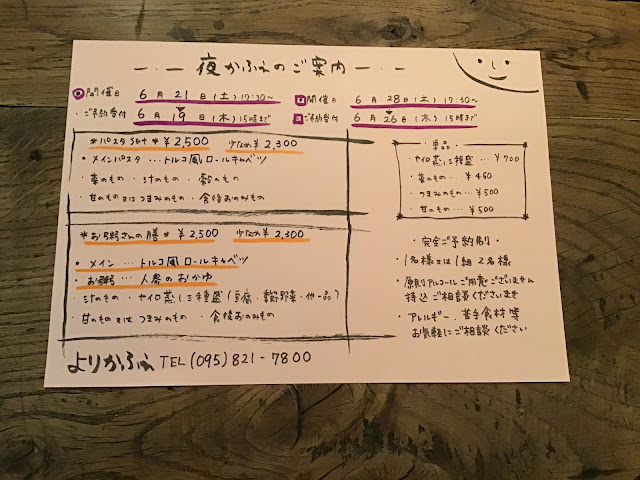 夜かふぇのご案内
開催日 6月21日(土) 17:30~
・ご予約受付 6月19日(木) 15時まで
開催日 6月28日(土) 17:30~
ご予約受付 6月26日(木) 15時まで
*パスタset* ¥2,500 少なめ¥2,300
・メインパスタ…トルコ風ロールキャベツ
・菜のもの・汁のもの・穀のもの
・甘のもの又はつまみのもの・食後おのみもの
*お粥さんの膳* ¥2,500 少なめ¥2,300
・メイン…トルコ風ロールキャベツ
・お粥…人参のおかゆ
・汁のもの・セイロ蒸し三種盛(豆腐・季節野菜・他一品)
・甘のもの又はつまみのもの・食後おのみもの
よりかふぇ TEL(095)821-7800
単品
・セイロ蒸し三種盛…¥700
・菜のもの…¥450
・つまみのもの…¥500
・甘のもの…¥500
・完全ご予約制・
・1名様又は1組2名様
・原則アルコールご用意ございません
持込ご相談くださいませ
・アレルギー、苦手食材等
お気軽にご相談ください